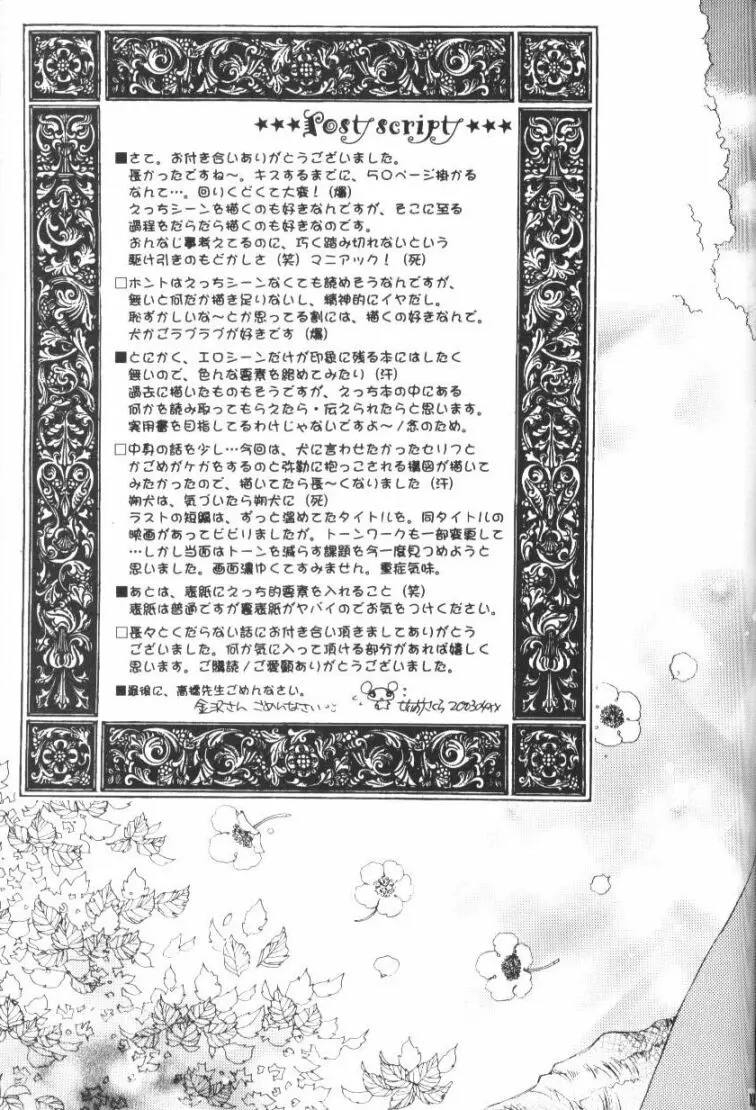 ★★★Post script★★★
■さて。お付き合いありがとうございました。
長かったですね〜。キスするまでに、50ページ掛かる
なんて…。回りくどくて大変!(爆)
えっちシーンを描くのも好きなんですが、そこに至る
過程をだらだら描くのも好きなのです。
おんなじ事考えてるのに、巧く踏み切れないという
駆け引きのもどかしさ(笑)マニアック!(死)
□ホントはえっちシーンなくても読めそうなんですが、
無いと何だか描き足りないし、精神的にイヤだし。
恥ずかしいな〜とか思ってる割には、描くの好きなんで。
犬かごラブラブが好きです(爆)
■とにかく、エロシーンだけが印象に残る本にはしたく
無いので、色んな要素を絡めてみたり(汗)
過去に描いたものもそうですが、えっち本の中にある
何かを読み取ってもらえたら・伝えられたらと思います。
実用書を目指してるわけじゃないですよ〜/念のため。
□中身の話を少し…今回は、犬に言わせたかったセリフと
かごめがケガをするのと弥勒に抱っこされる構図が描いて
みたかったので、描いてたら長〜くなりました(汗)
朔犬は、気づいたら朔犬に(死)
ラストの短編は、ずっと温めてたタイトルを。同タイトルの
映画があってビビりましたが。トーンワークも一部変更して
…しかし当面はトーンを減らす課題を今一度見つめようと
思いました。画面濃ゆくてすみません。重症気味。
■あとは、表紙にえっち的要素を入れること(笑)
表紙は普通ですが裏表紙がヤバイのでお気をつけください。
□長々とくだらない話にお付き合い頂きましてありがとう
ございました。何か気に入って頂ける部分があれば嬉しく
思います。ご購読/ご愛顧ありがとうございました。
■最後に、高橋先生ごめんなさい。
金沢さん ごめんなさい